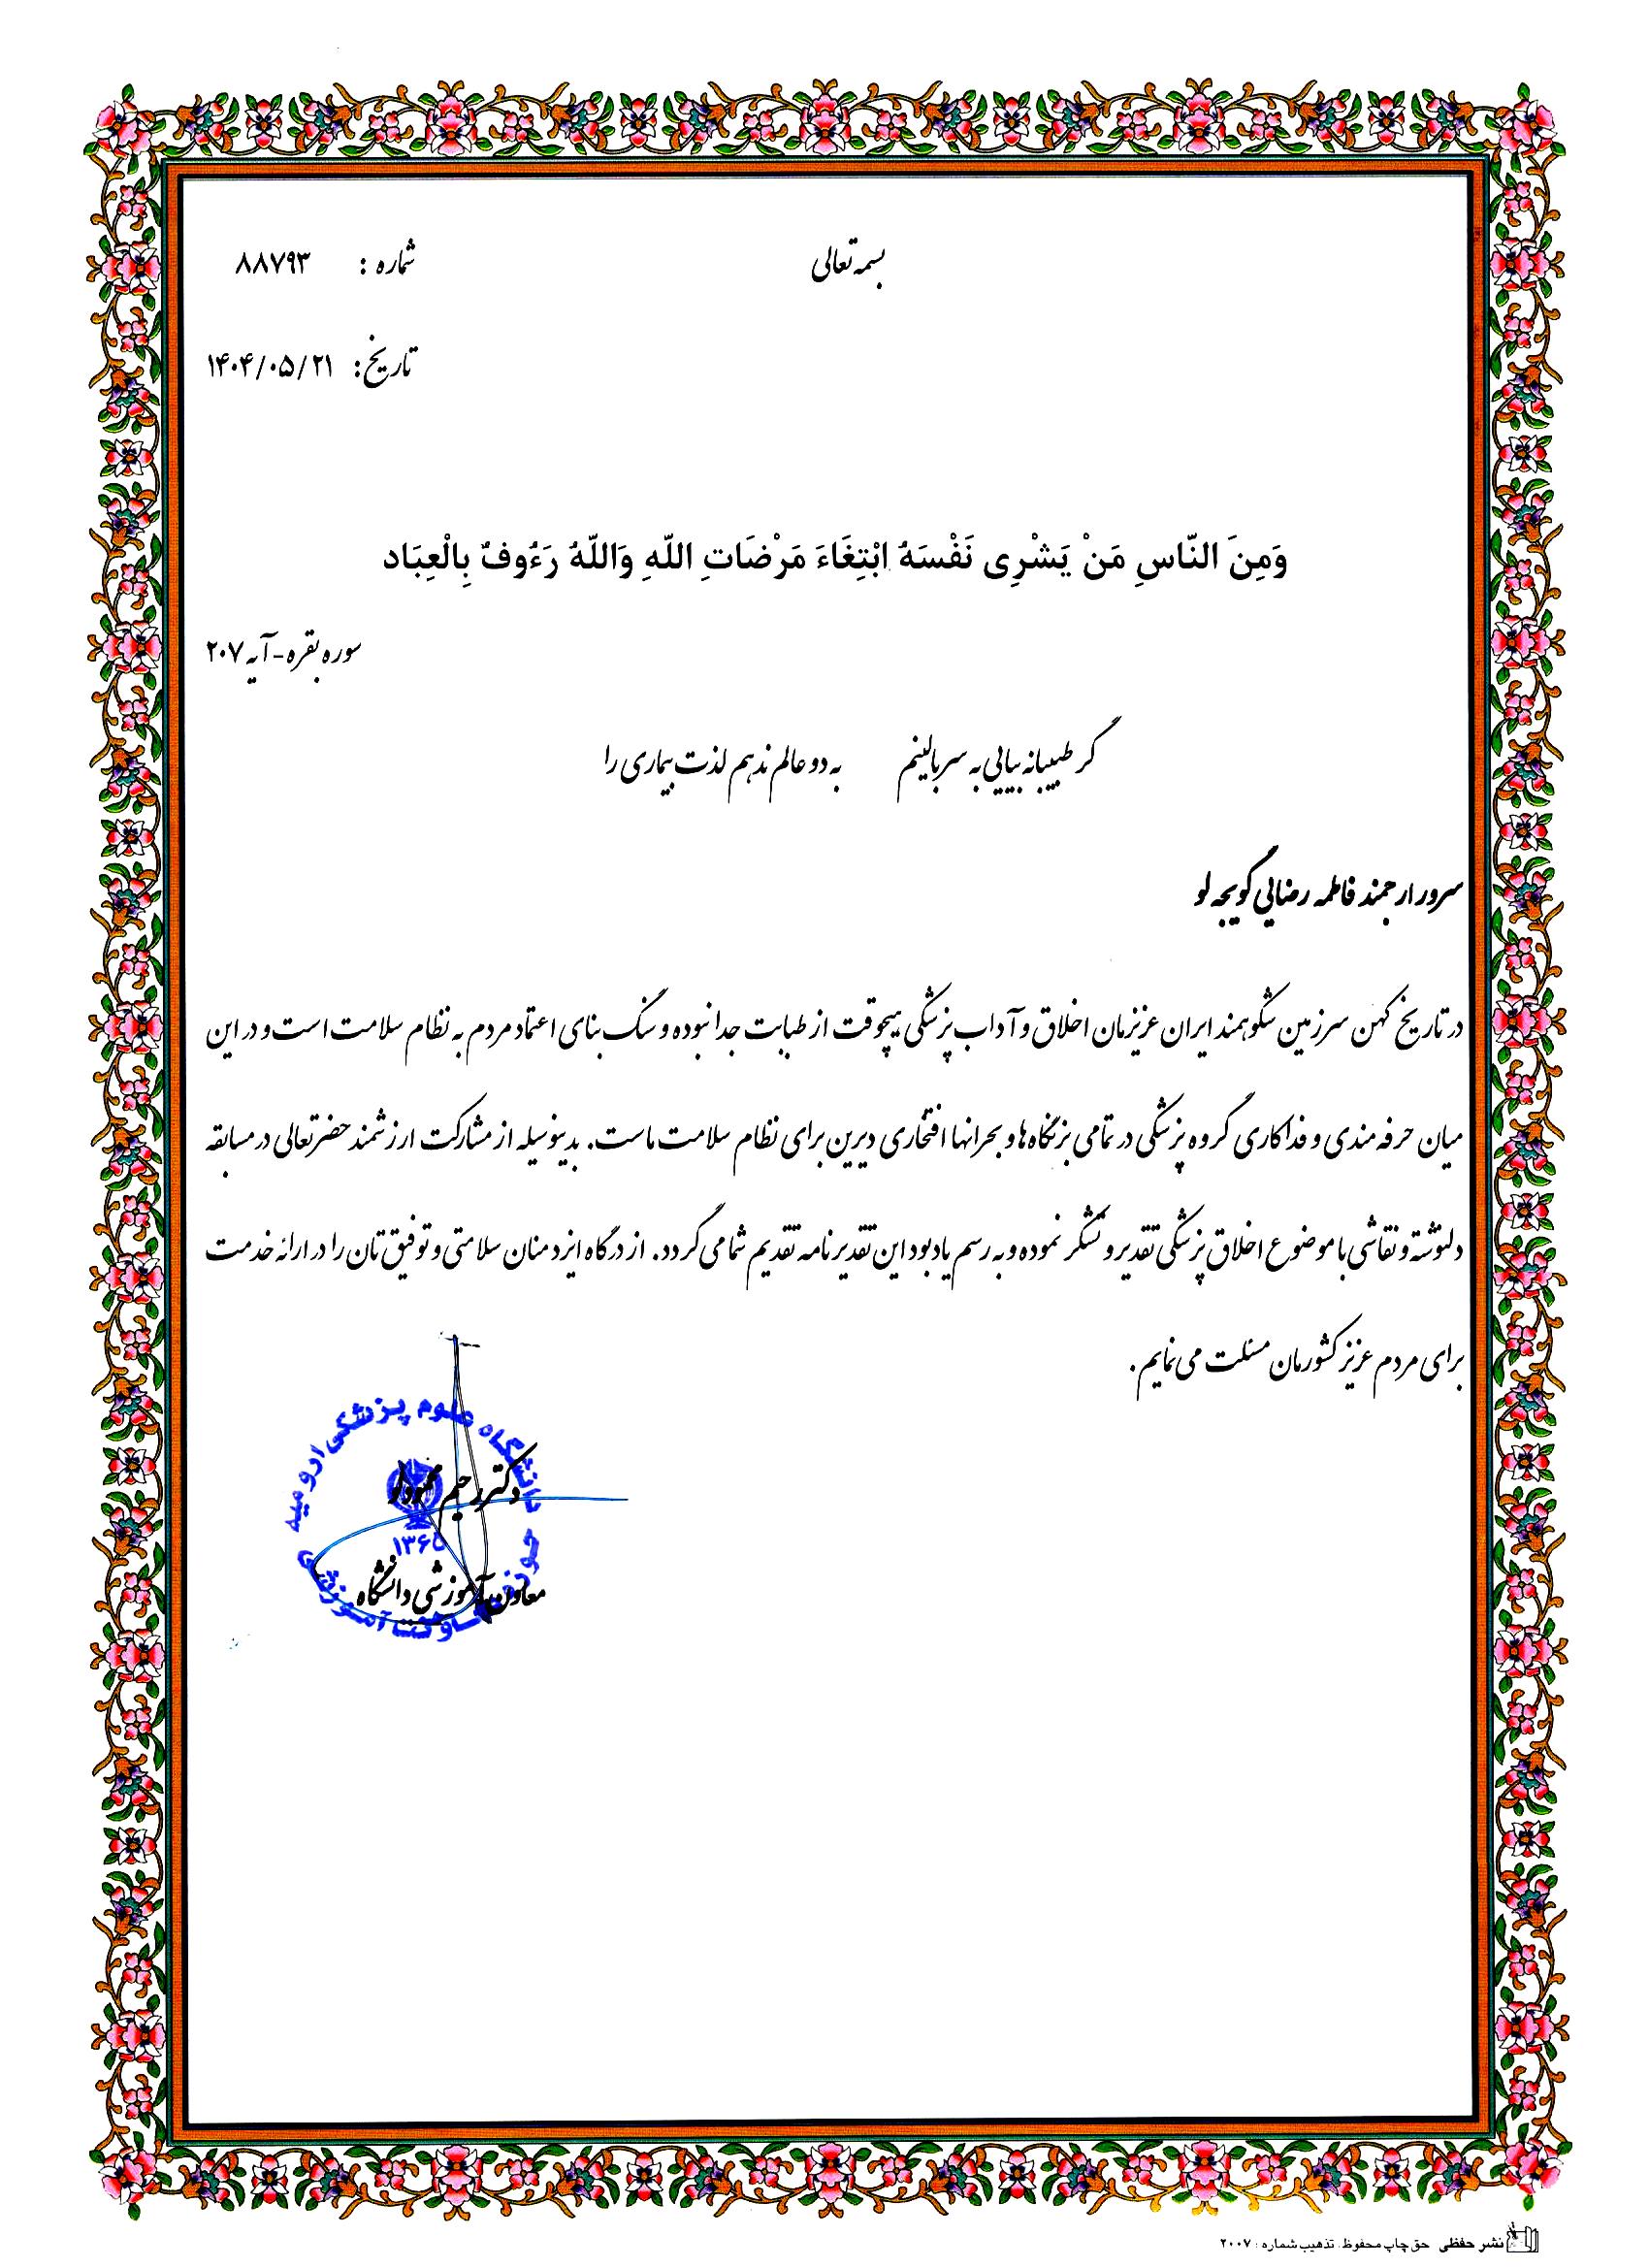 بسمه تعالی
شماره : ۸۸۷۹۳
تاریخ: ۱۴۰۴/۰۵/۲۱
وَمِنَ النّاسِ مَنْ يَشْرِی نَفْسَهُ ابْتِغَاءَ مَرْضَاتِ اللّهِ وَاللّهُ رَءُوفٌ بِالْعِبَاد
سوره بقره-آیه ۲۰۷
گر طبیبانه بیایی به سر بالینم به دو عالم ندهم لذت بیماری را
سرور ارجمند فاطمه رضایی گویجه لو
در تاریخ کهن سرزمین شکوهمند ایران عزیزمان اخلاق و آداب پزشکی هیچوقت از طبابت جدا نبوده و سنگ بنای اعتماد مردم به نظام سلامت است و در این
میان حرفه مندی و فداکاری گروه پزشکی در تمامی بزنگاه ها و بحرانها افتخاری دیرین برای نظام سلامت ماست. بدینوسیله از مشارکت ارزشمند حضرتعالی در مسابقه
دلنوشته و نقاشی با موضوع اخلاق پزشکی تقدیر و تشکر نموده و به رسم یادبود این تقدیرنامه تقدیم شما می گردد. از درگاه ایزد منان سلامتی و توفیق تان را در ارائه خدمت
برای مردم عزیز کشورمان مسئلت می نمایم.
دانشگاه علوم پزشکی ارومیه
دکتر رحیم محمودلو
۱۳۶۵
معاون آموزشی دانشگاه
حوزه معاونت آموزشی
نشر حفظی حق چاپ محفوظ. تذهیب شماره : ۲۰۰۷